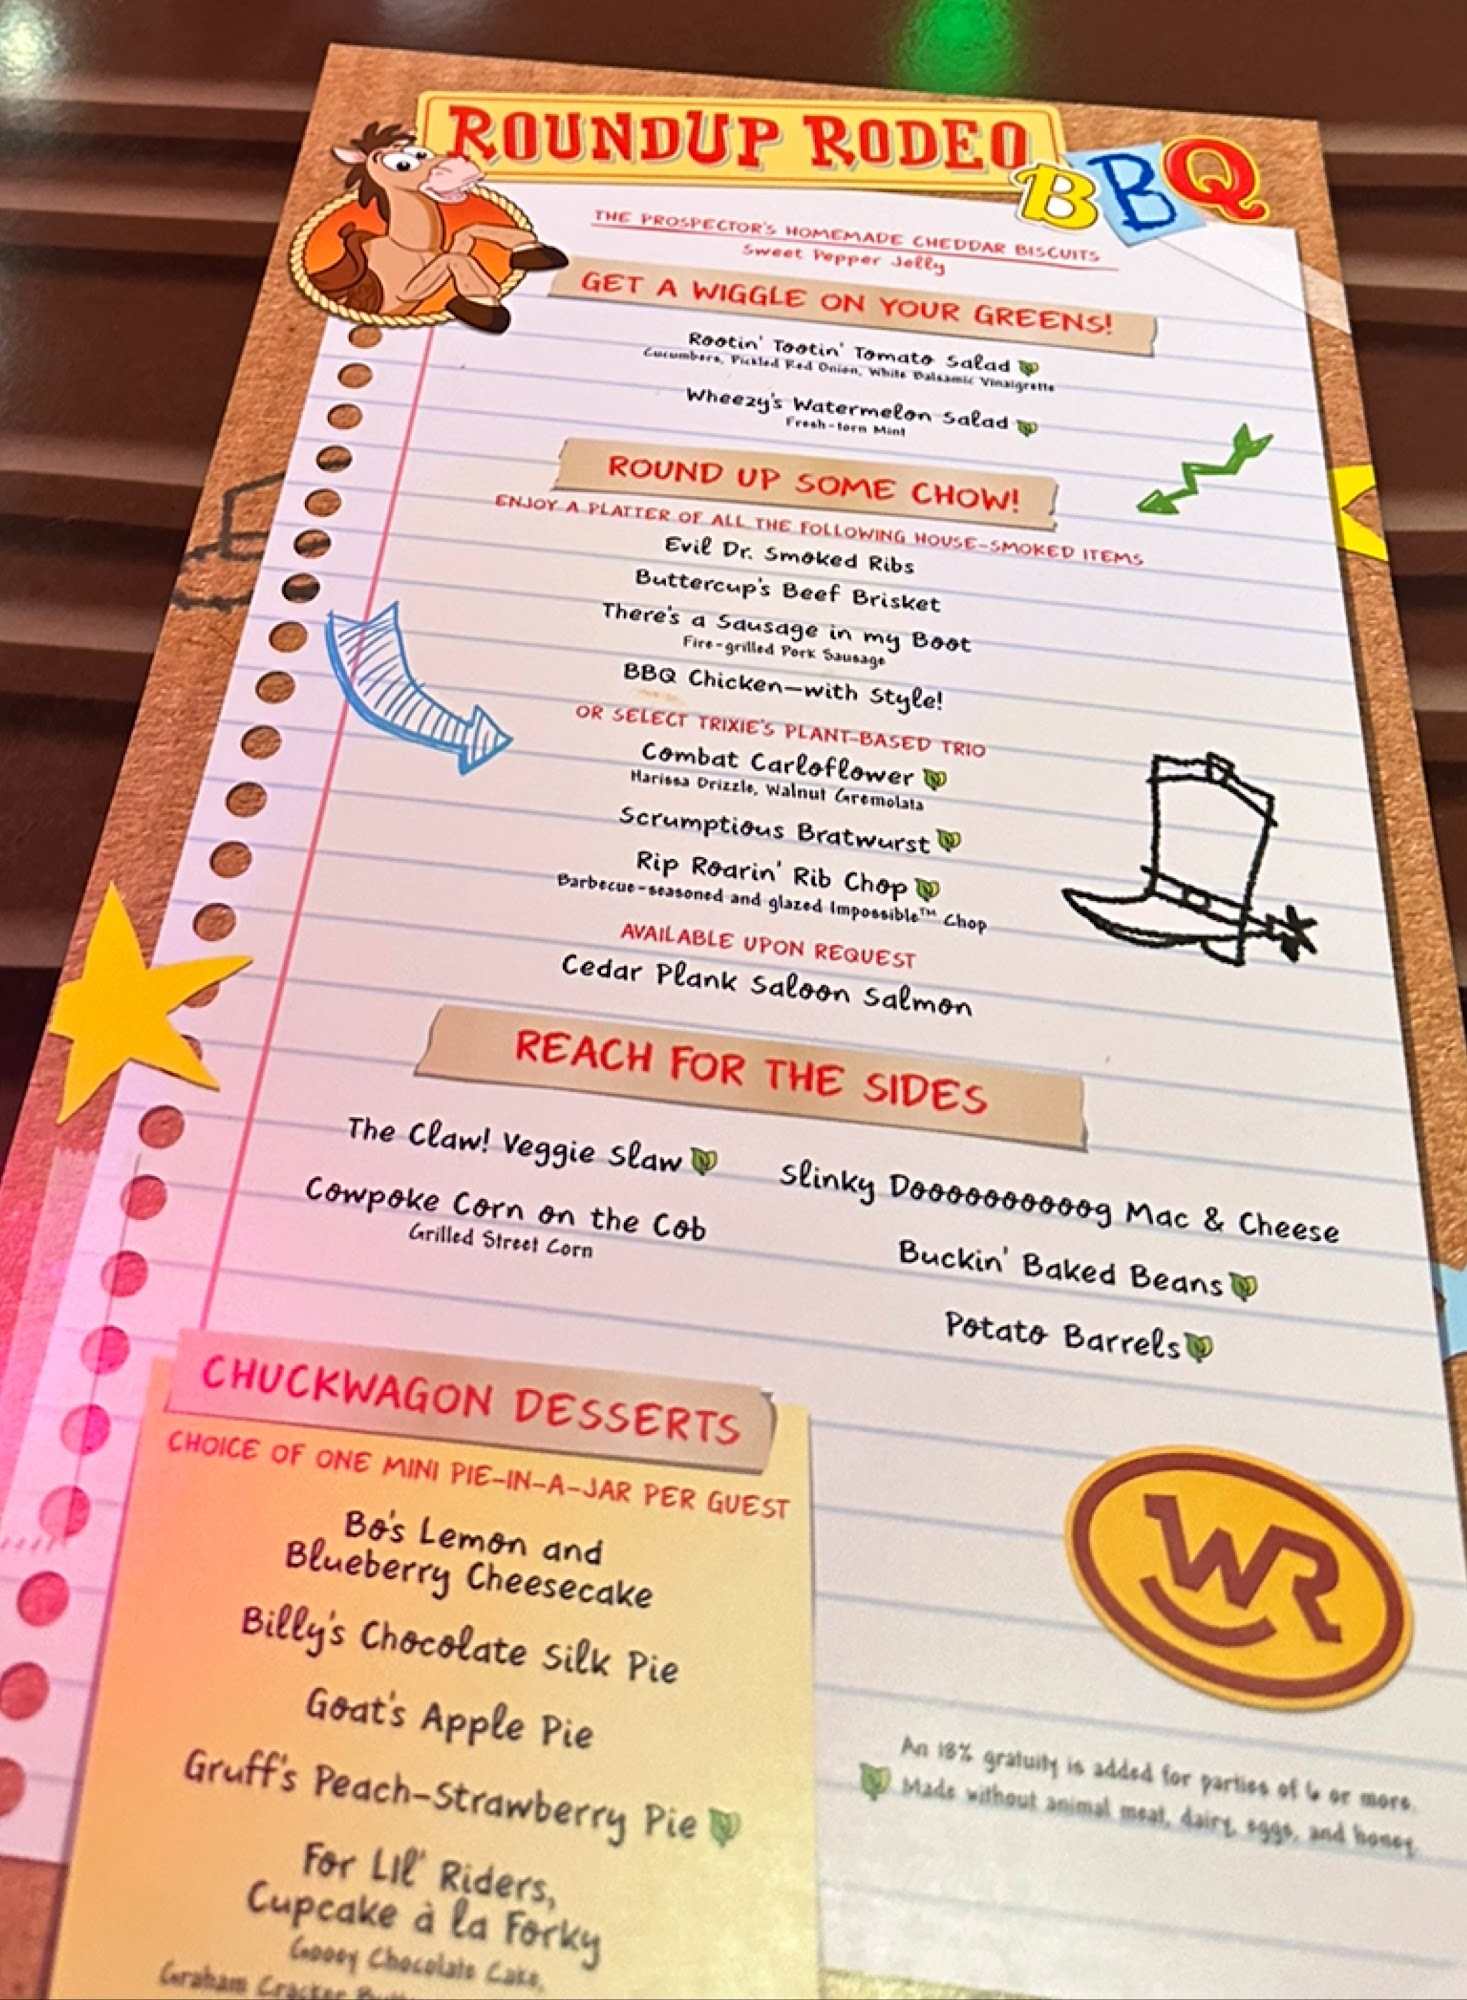 ROUNDUP RODEO
BBQ
THE PROSPECTOR'S HOMEMADE CHEDDAR BISCUITS
Sweet Pepper Jelly
GET A WIGGLE ON YOUR GREENS!
Rootin' Tootin' Tomato Salad
Cucumbers, Pickled Red Onion, White Balsamic Vinaigrette
Wheezy's Watermelon Salad
Fresh-torn Mint
ROUND UP SOME CHOW!
ENJOY A PLATTER OF ALL THE FOLLOWING HOUSE-SMOKED ITEMS
Evil Dr. Smoked Ribs
Buttercup's Beef Brisket
There's a Sausage in my Boot
Fire-grilled Pork Sausage
BBQ Chicken—with Style!
OR SELECT TRIXIE'S PLANT-BASED TRIO
Combat Carloflower
Harissa Drizzle, Walnut Gremolata
Scrumptious Bratwurst
Rip Roarin' Rib Chop
Barbecue-seasoned and glazed Impossible™ Chop
AVAILABLE UPON REQUEST
Cedar Plank Saloon Salmon
REACH FOR THE SIDES
The Claw! Veggie Slaw
Cowpoke Corn on the Cob
Grilled Street Corn
Slinky Doooooooooog Mac & Cheese
Buckin' Baked Beans
Potato Barrels
CHUCKWAGON DESSERTS
CHOICE OF ONE MINI PIE-IN-A-JAR PER GUEST
Bo's Lemon and
Blueberry Cheesecake
Billy's Chocolate Silk Pie
Goat's Apple Pie
Gruff's Peach-Strawberry Pie
For Lil' Riders,
Cupcake à la Forky
Gooey Chocolate Cake,
Graham Cracker
WR
An 18% gratuity is added for parties of 6 or more.
Made without animal meat, dairy, eggs, and honey.